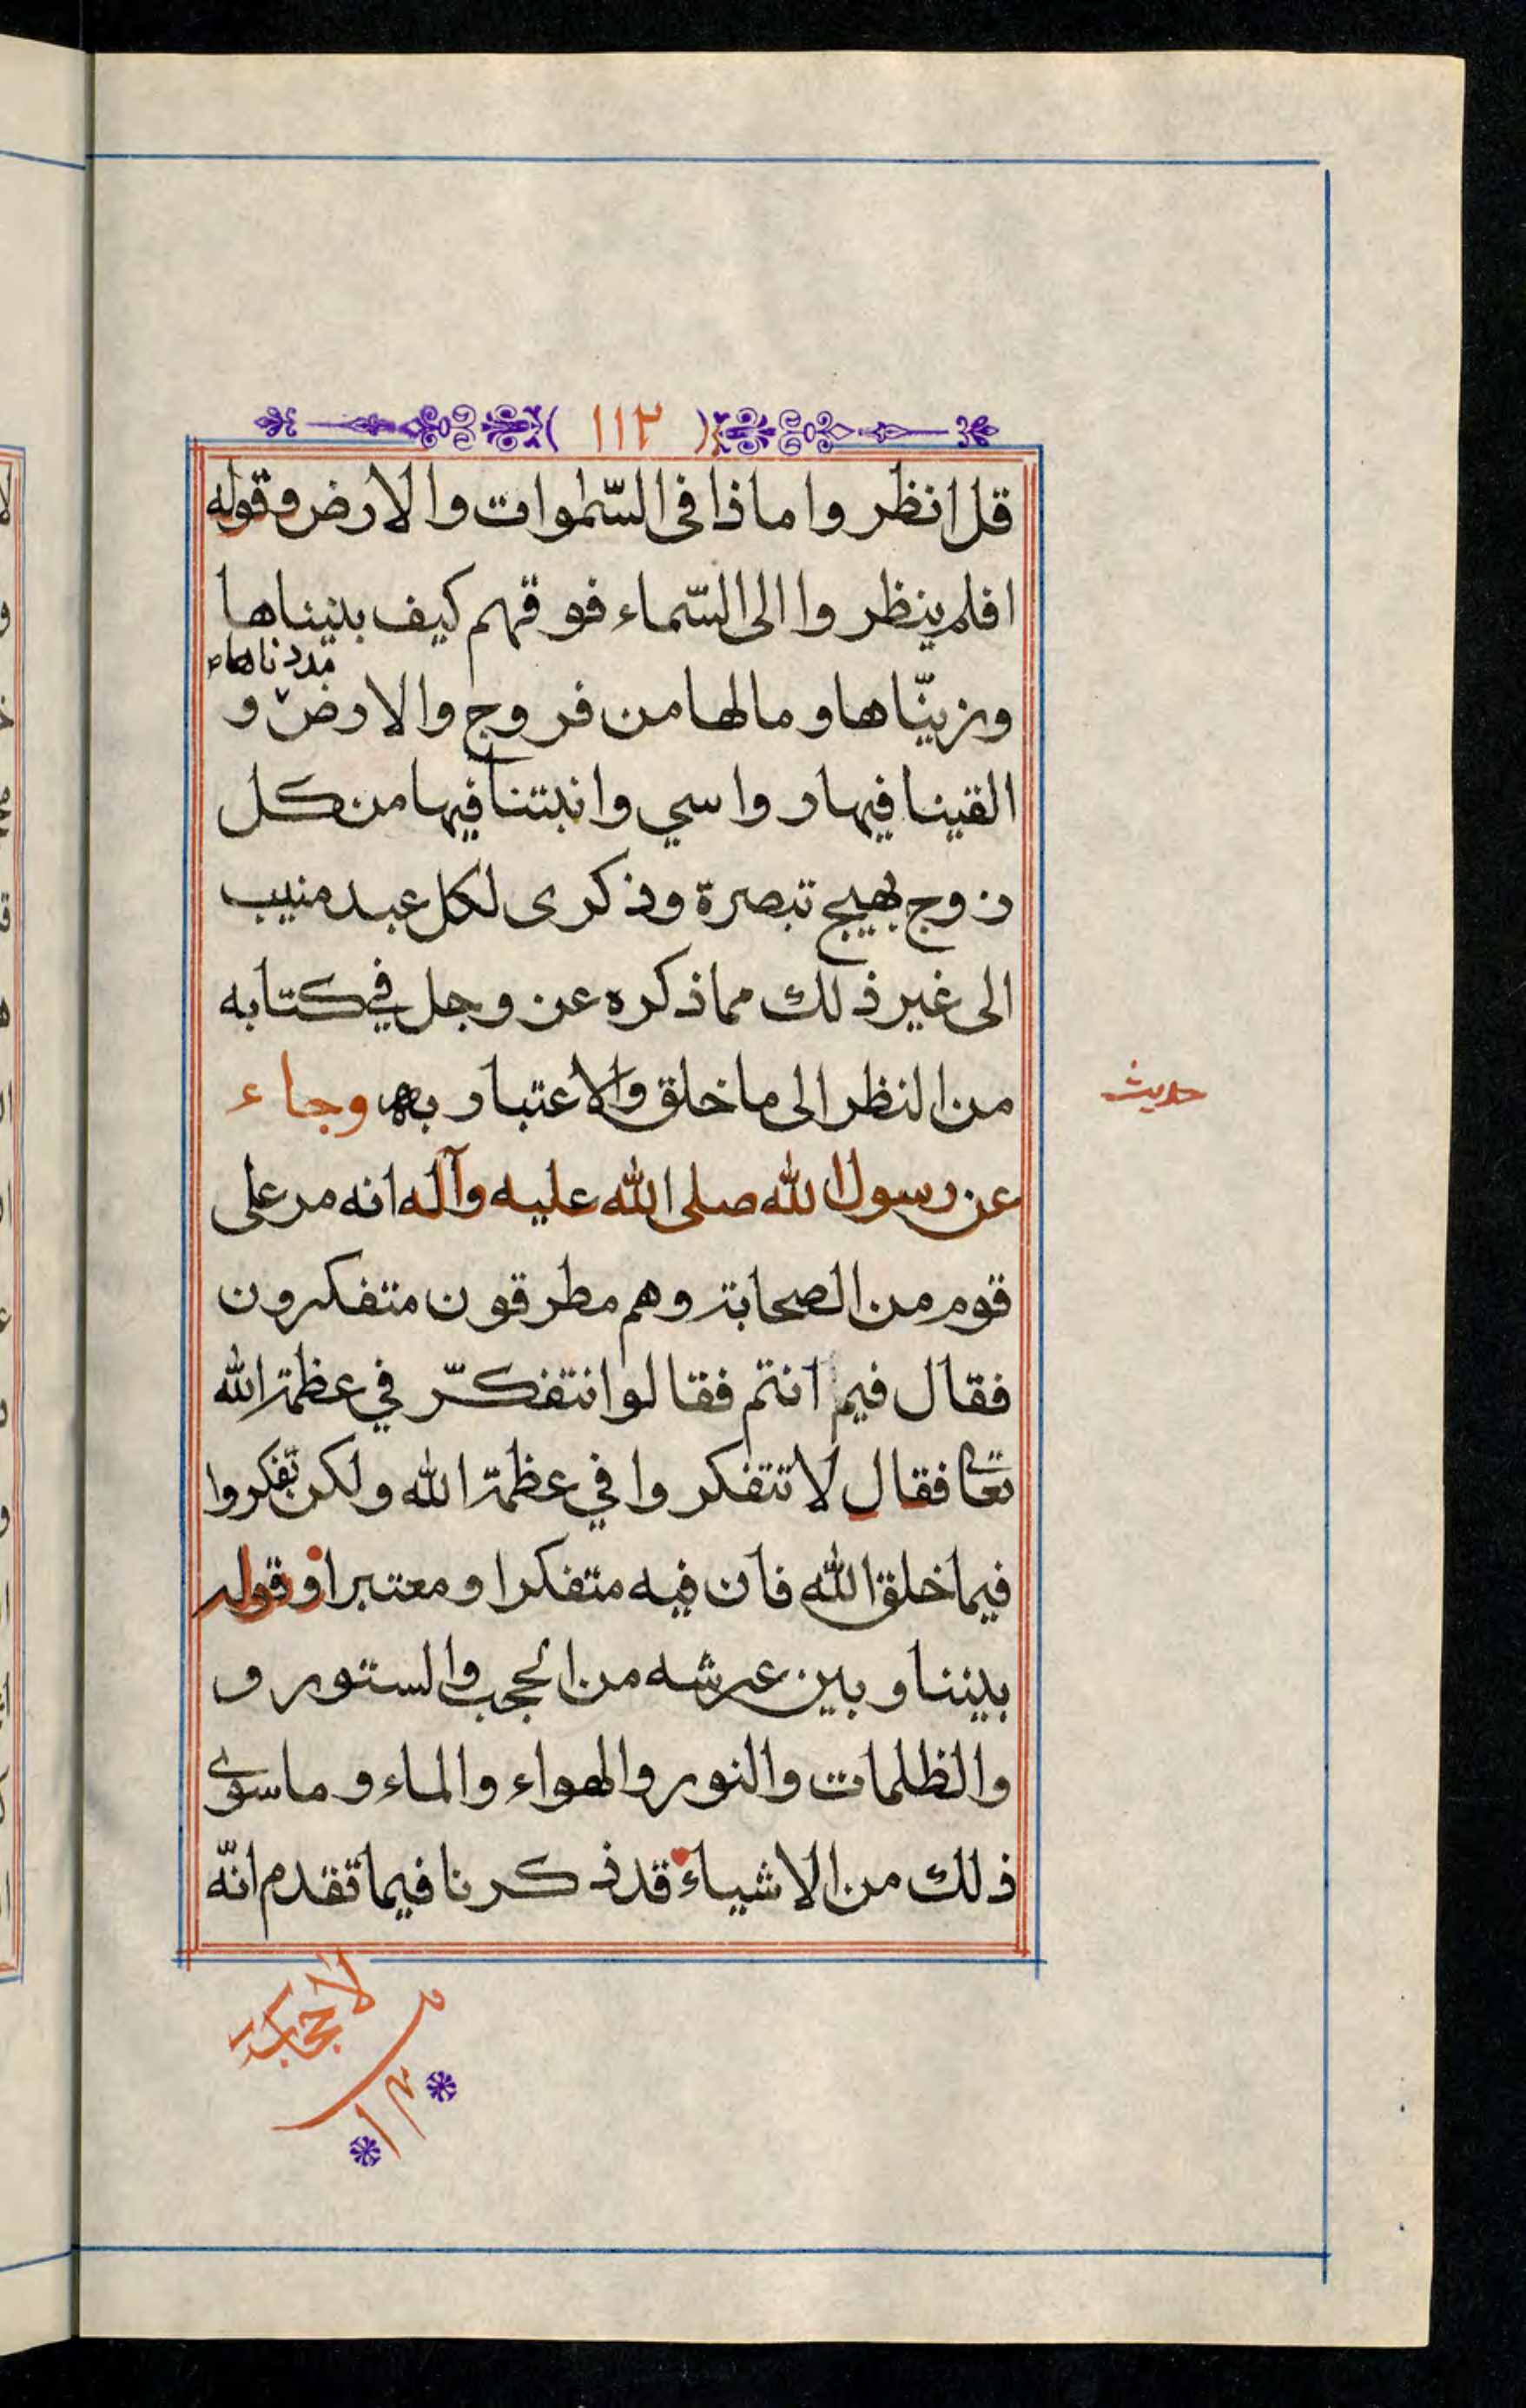 ( ١١٢ )
قل انظروا ماذا فى السّموات والارض وقوله
افلم ينظروا الى السّماء فوقهم كيف بنيناها
مددناها
وزينّاها وما لها من فروج والارض و
القينا فيها رواسي وانبتنا فيها من كل
زوج بهيج تبصرة وذكرى لكل عبد منيب
الى غير ذلك مما ذكره عز وجل في كتابه
من النظر الى ما خلق والاعتبار به وجاء
حديث
عن رسول الله صلى الله عليه وآله انه مر على
قوم من الصحابة وهم مطرقون متفكرون
فقال فيم انتم فقالوا نتفكّر في عظمة الله
تعالى فقال لا تتفكروا في عظمة الله ولكن تفكروا
فيما خلق الله فان فيه متفكرا ومعتبرا وقوله
بيننا وبين عرشه من الحجب والستور و
والظلمات والنور والهواء والماء وما سوى
ذلك من الاشياء قد ذكرنا فيما تقدم انّه
لا حجاب